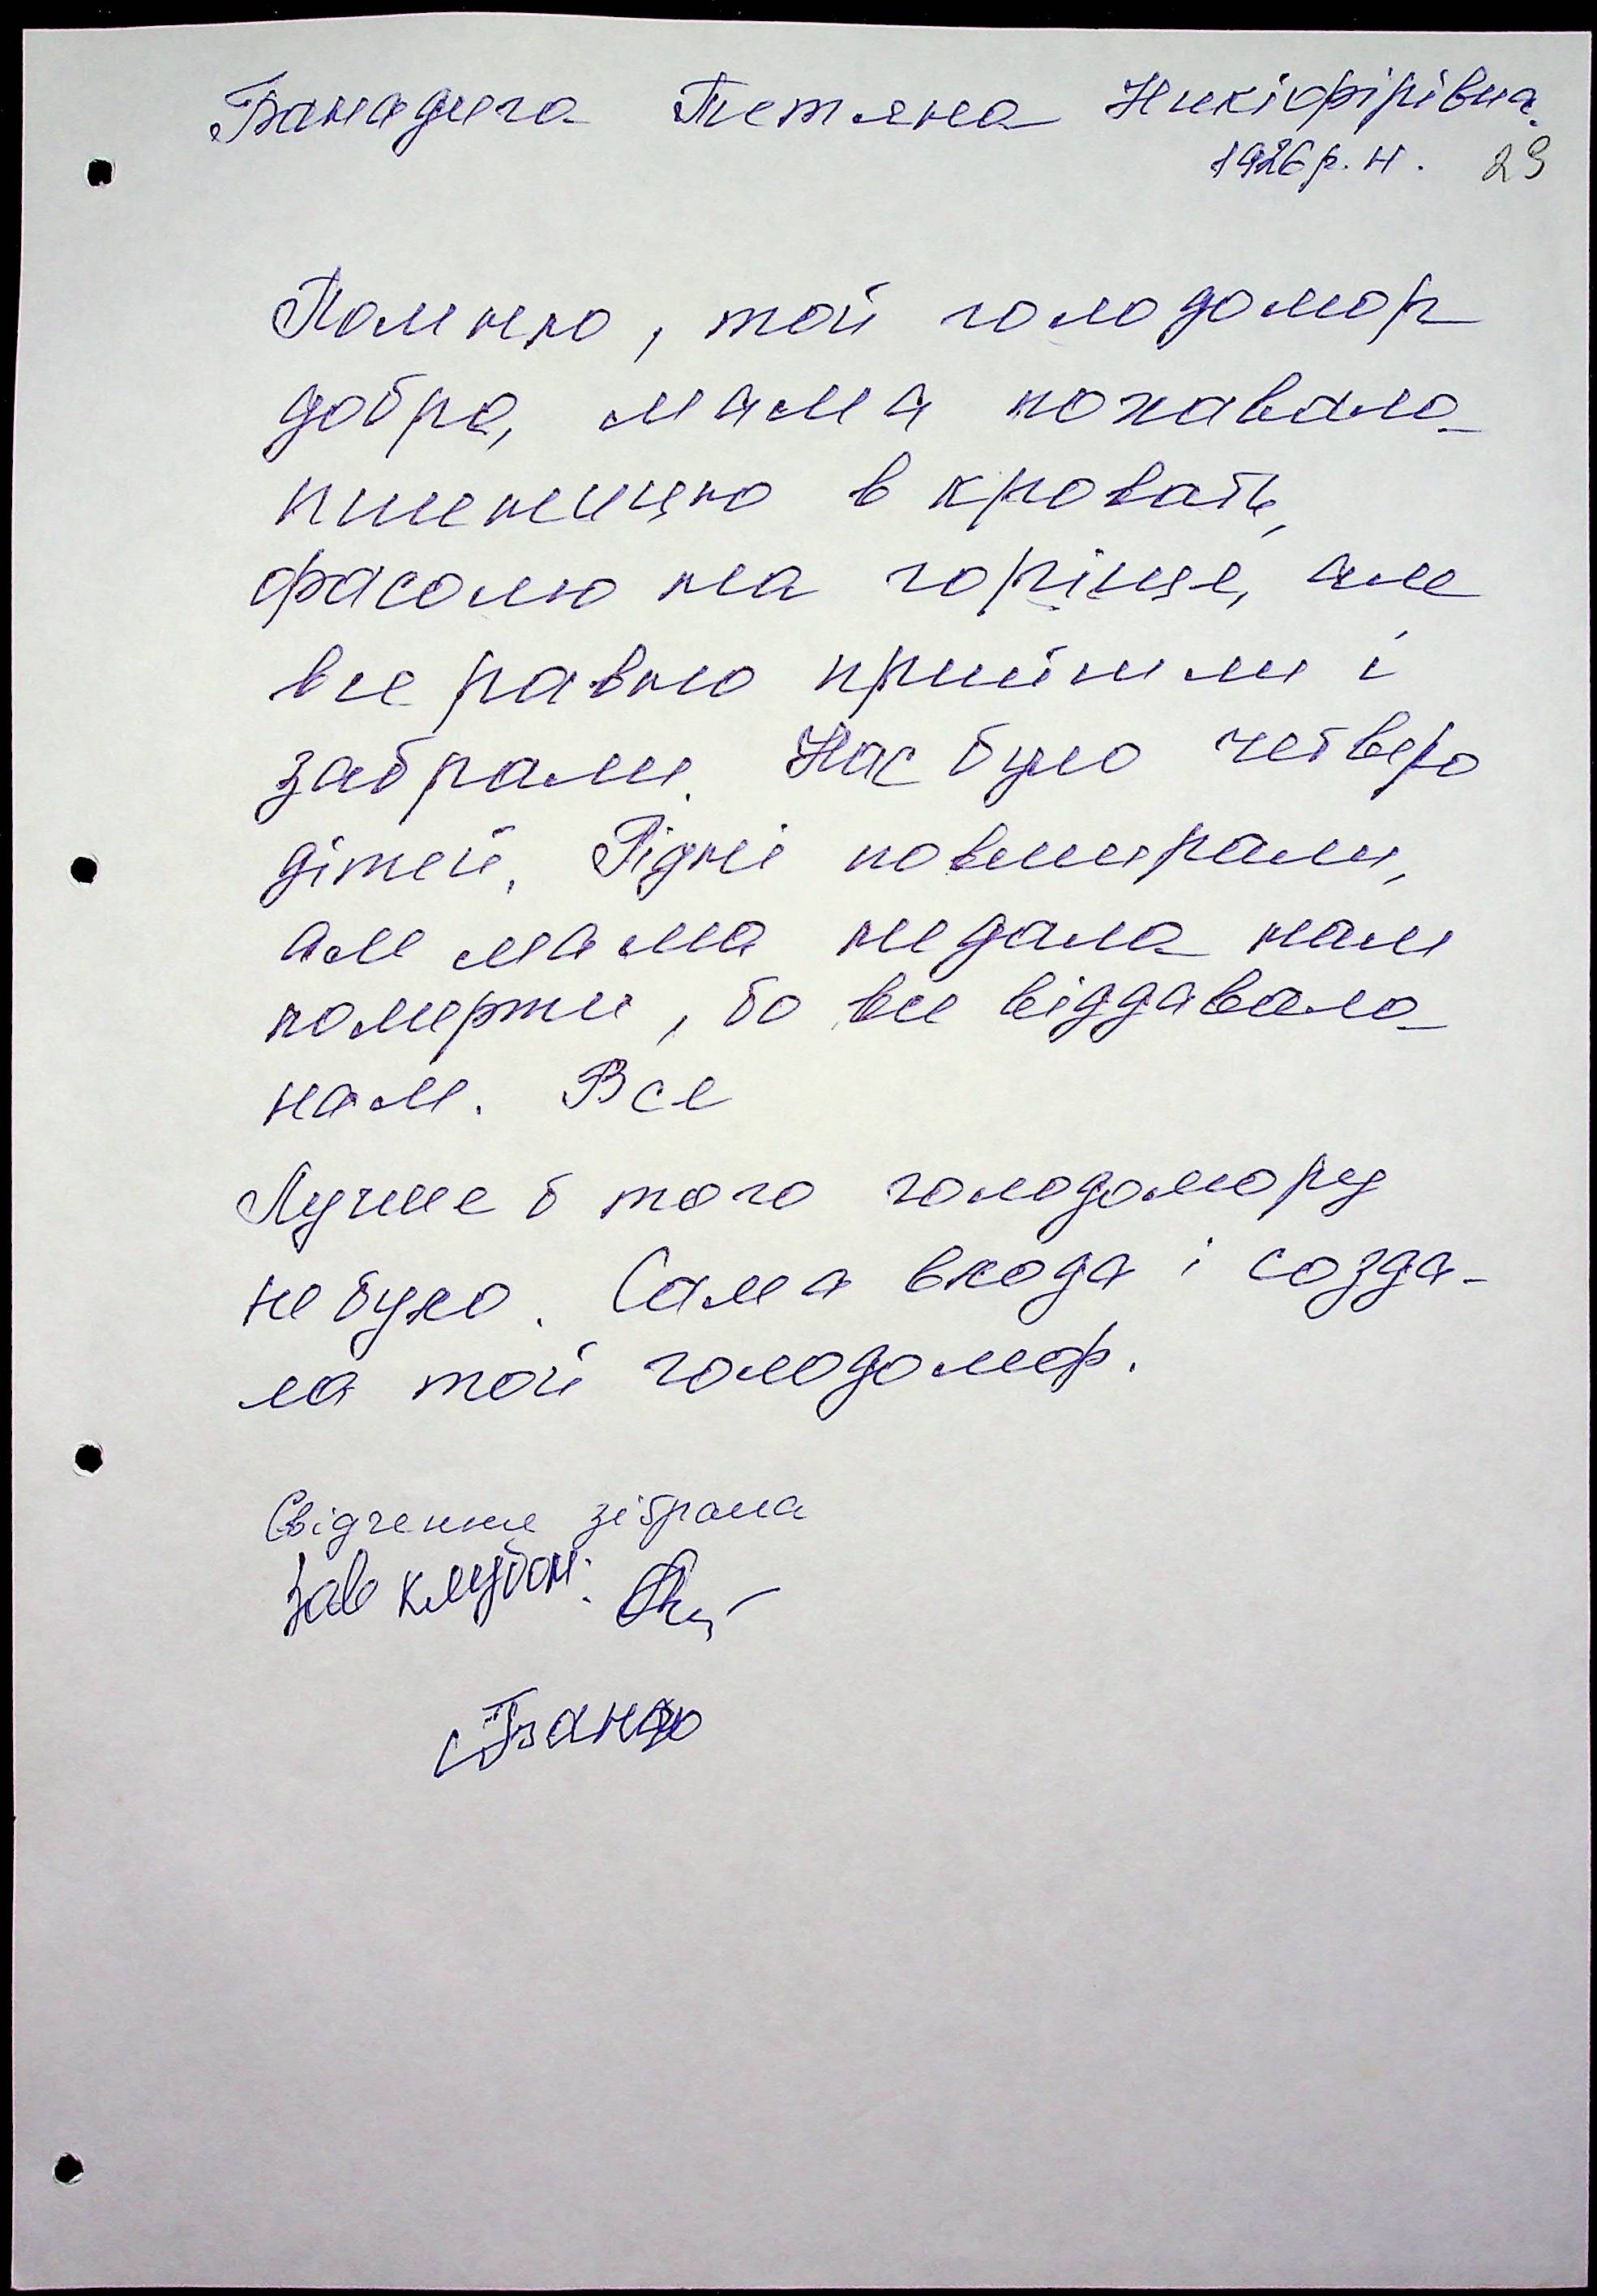 Банадига Тетяна Никіфірівна.
1926 р. н. 29
Помню, той голодомор
добре, мама поховала
пшеницю в кровать,
фасолю на горіще, але
все равно прийшли і
забрали. Нас було четверо
дітей. Рідні повмирали,
але мама не дала нам
померти, бо все віддавала
нам. Все
Лучше б того голодомору
не було. Сама влада і созда-
ла той голодомор.
Свідчення зібрала
Зав клубом: